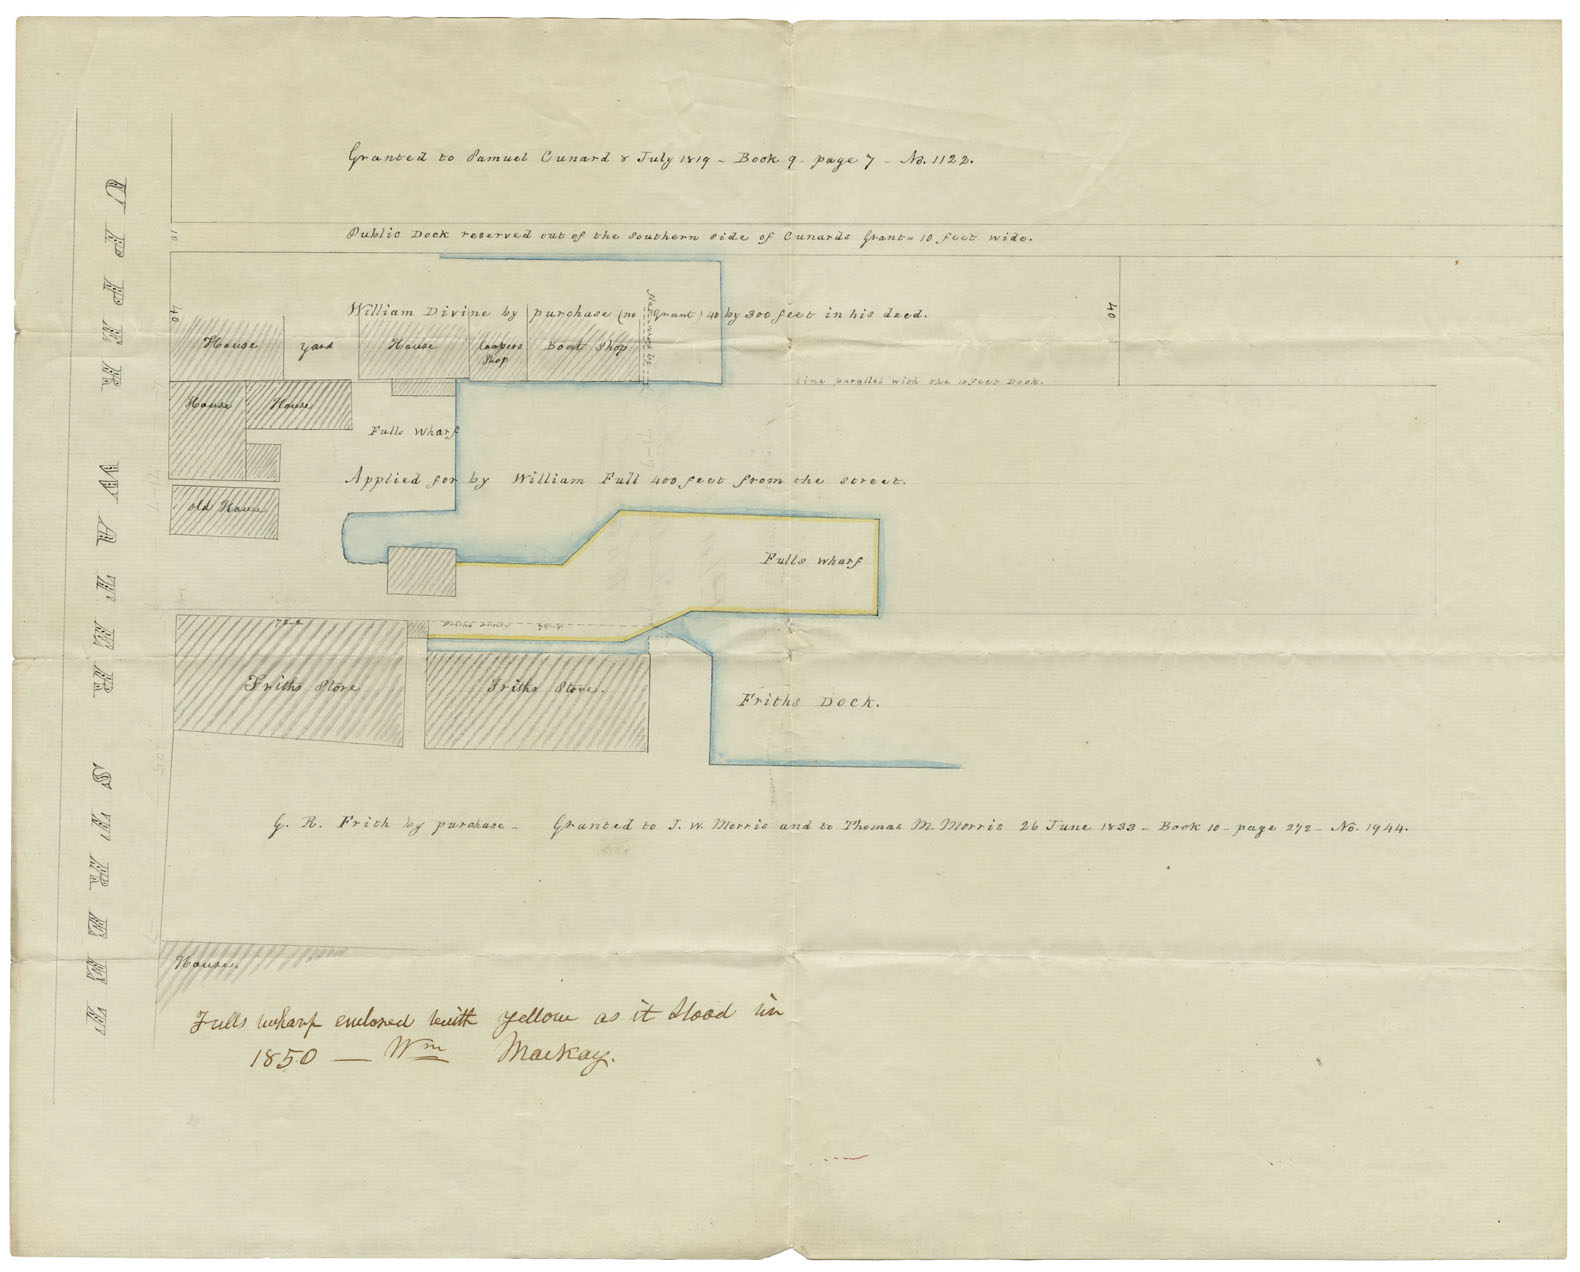 Granted to Samuel Cunard 8 July 1819 – Book 9 – page 7 – No. 1122.
10
Public Dock reserved out of the Southern side of Cunards Grant = 10 feet wide.
UPPER WATER STREET
40
William Divine by purchase (no Grant) 40 by 300 feet in his deed.
40
House
yard
House
Coopers Shop
Boat Shop
Line parallel with the 10 feet Dock.
House
House
Fulls Wharf
Applied for by William Full 400 feet from the street.
old House
Fulls wharf
72-2
Friths Store
Friths Store.
Friths Dock.
G. R. Frith by purchase – Granted to J. W. Morris and to Thomas M. Morris 26 June 1833 – Book 10 – page 272 – No. 1944.
House.
Fulls wharf enclosed with yellow as it stood in
1850 — Wm Mackay.